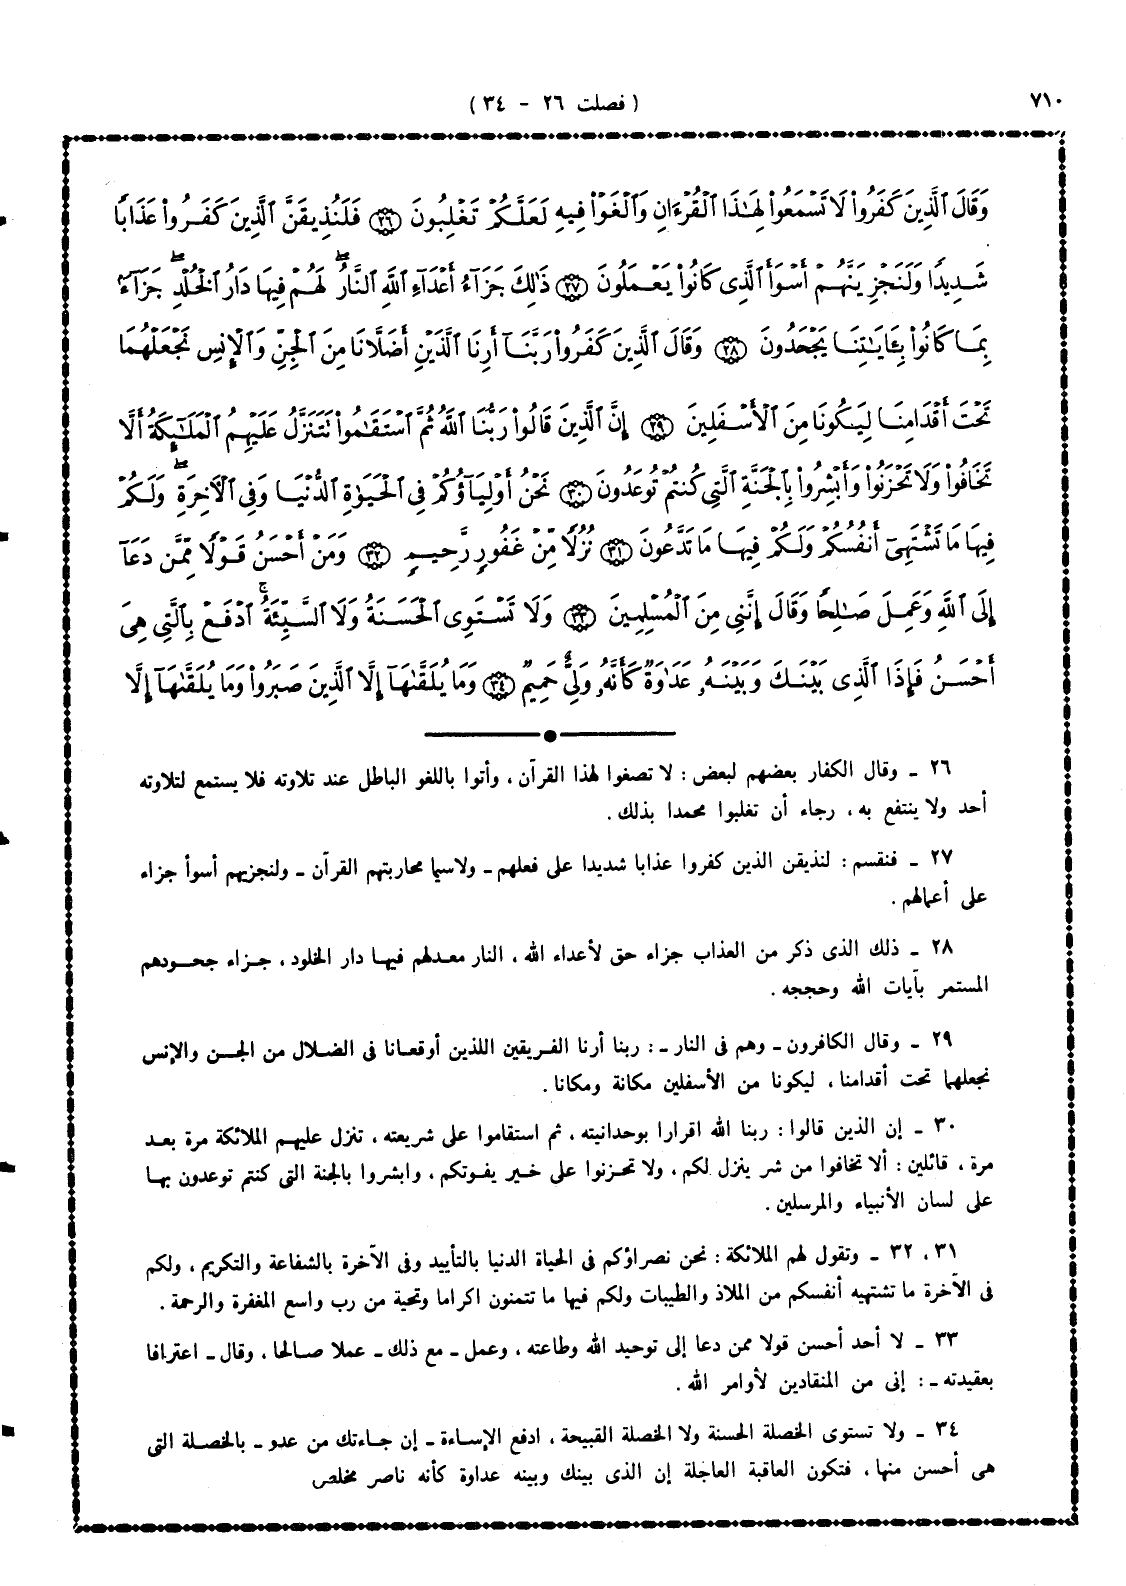 ٧١٠
( فصلت ٢٦ - ٣٤ )
وَقَالَ ٱلَّذِينَ كَفَرُوا۟ لَا تَسْمَعُوا۟ لِهَٰذَا ٱلْقُرْءَانِ وَٱلْغَوْا۟ فِيهِ لَعَلَّكُمْ تَغْلِبُونَ ٢٦ فَلَنُذِيقَنَّ ٱلَّذِينَ كَفَرُوا۟ عَذَابًا
شَدِيدًا وَلَنَجْزِيَنَّهُمْ أَسْوَأَ ٱلَّذِى كَانُوا۟ يَعْمَلُونَ ٢٧ ذَٰلِكَ جَزَآءُ أَعْدَآءِ ٱللَّهِ ٱلنَّارُ ۖ لَهُمْ فِيهَا دَارُ ٱلْخُلْدِ ۖ جَزَآءًۢ
بِمَا كَانُوا۟ بِـَٔايَٰتِنَا يَجْحَدُونَ ٢٨ وَقَالَ ٱلَّذِينَ كَفَرُوا۟ رَبَّنَآ أَرِنَا ٱلَّذَيْنِ أَضَلَّانَا مِنَ ٱلْجِنِّ وَٱلْإِنسِ نَجْعَلْهُمَا
تَحْتَ أَقْدَامِنَا لِيَكُونَا مِنَ ٱلْأَسْفَلِينَ ٢٩ إِنَّ ٱلَّذِينَ قَالُوا۟ رَبُّنَا ٱللَّهُ ثُمَّ ٱسْتَقَٰمُوا۟ تَتَنَزَّلُ عَلَيْهِمُ ٱلْمَلَٰٓئِكَةُ أَلَّا
تَخَافُوا۟ وَلَا تَحْزَنُوا۟ وَأَبْشِرُوا۟ بِٱلْجَنَّةِ ٱلَّتِى كُنتُمْ تُوعَدُونَ ٣٠ نَحْنُ أَوْلِيَآؤُكُمْ فِى ٱلْحَيَوٰةِ ٱلدُّنْيَا وَفِى ٱلْءَاخِرَةِ ۖ وَلَكُمْ
فِيهَا مَا تَشْتَهِىٓ أَنفُسُكُمْ وَلَكُمْ فِيهَا مَا تَدَّعُونَ ٣١ نُزُلًا مِّنْ غَفُورٍ رَّحِيمٍ ٣٢ وَمَنْ أَحْسَنُ قَوْلًا مِّمَّن دَعَآ
إِلَى ٱللَّهِ وَعَمِلَ صَٰلِحًا وَقَالَ إِنَّنِى مِنَ ٱلْمُسْلِمِينَ ٣٣ وَلَا تَسْتَوِى ٱلْحَسَنَةُ وَلَا ٱلسَّيِّئَةُ ۚ ٱدْفَعْ بِٱلَّتِى هِىَ
أَحْسَنُ فَإِذَا ٱلَّذِى بَيْنَكَ وَبَيْنَهُۥ عَدَٰوَةٌ كَأَنَّهُۥ وَلِىٌّ حَمِيمٌ ٣٤ وَمَا يُلَقَّىٰهَآ إِلَّا ٱلَّذِينَ صَبَرُوا۟ وَمَا يُلَقَّىٰهَآ إِلَّا
٢٦ ـ وقال الكفار بعضهم لبعض : لا تصغوا لهذا القرآن ، وأتوا باللغو الباطل عند تلاوته فلا يستمع لتلاوته
أحد ولا ينتفع به ، رجاء أن تغلبوا محمدا بذلك .
٢٧ ـ فنقسم : لنذيقن الذين كفروا عذابا شديدا على فعلهم ـ ولاسيما محاربتهم القرآن ـ ولنجزيهم أسوأ جزاء
على أعمالهم .
٢٨ ـ ذلك الذى ذكر من العذاب جزاء حق لأعداء الله ، النار معدلهم فيها دار الخلود ، جزاء جحودهم
المستمر بآيات الله وحججه .
٢٩ ـ وقال الكافرون ـ وهم فى النار ـ : ربنا أرنا الفريقين اللذين أوقعانا فى الضلال من الجن والإنس
نجعلهما تحت أقدامنا ، ليكونا من الأسفلين مكانة ومكانا .
٣٠ ـ إن الذين قالوا : ربنا الله اقرارا بوحدانيته ، ثم استقاموا على شريعته ، تنزل عليهم الملائكة مرة بعد
مرة ، قائلين : ألا تخافوا من شر ينزل لكم ، ولا تحزنوا على خير يفوتكم ، وابشروا بالجنة التى كنتم توعدون بها
على لسان الأنبياء والمرسلين .
٣١ ، ٣٢ ـ وتقول لهم الملائكة : نحن نصراؤكم فى الحياة الدنيا بالتأييد وفى الآخرة بالشفاعة والتكريم ، ولكم
فى الآخرة ما تشتهيه أنفسكم من الملاذ والطيبات ولكم فيها ما تتمنون اكراما وتحية من رب واسع المغفرة والرحمة .
٣٣ ـ لا أحد أحسن قولا ممن دعا إلى توحيد الله وطاعته ، وعمل ـ مع ذلك ـ عملا صالحا ، وقال ـ اعترافا
بعقيدته ـ : إنى من المنقادين لأوامر الله .
٣٤ ـ ولا تستوى الخصلة الحسنة ولا الخصلة القبيحة ، ادفع الإساءة ـ إن جاءتك من عدو ـ بالخصلة التى
هى أحسن منها ، فتكون العاقبة العاجلة إن الذى بينك وبينه عداوة كأنه ناصر مخلص